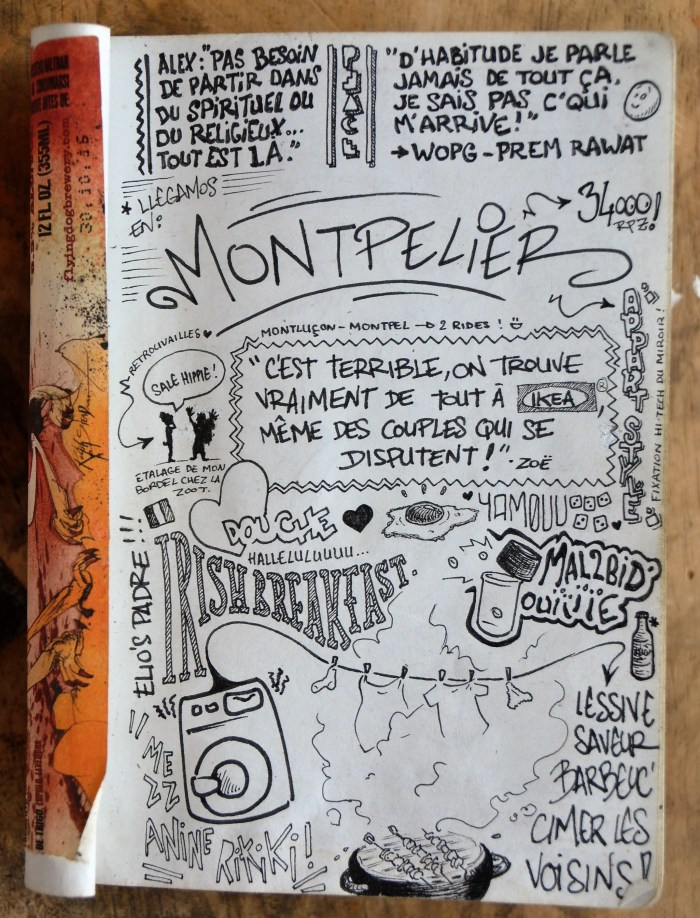 ALEX: "PAS BESOIN
DE PARTIR DANS
DU SPIRITUEL OU
DU RELIGIEUX...
TOUT EST LÀ."
PEACE
"D'HABITUDE JE PARLE
JAMAIS DE TOUT ÇA.
JE SAIS PAS C'QUI
M'ARRIVE!"
→ WOPG - PREM RAWAT
* LLEGAMOS
EN:
MONTPELIER
34000!
RPZ!
RETROUVAILLES ♥
SALE HIPPIE!
ETALAGE DE MON
BORDEL CHEZ LA
ZOOT.
MONTLUÇON - MONTPEL → 2 RIDES !
"C'EST TERRIBLE, ON TROUVE
VRAIMENT DE TOUT À IKEA®,
MÊME DES COUPLES QUI SE
DISPUTENT!" - ZOË
APPART STYLÉ
FIXATION HI-TECH DU MIROIR!
DOUCHE ♥
HALLELULUUUU...
YAMOUU
IRISH BREAKFAST.
ELIO'S PADRE !!!
MAL2BID'
OUIIIIE
LESSIVE
SAVEUR
BARBEUC'
CIMER LES
VOISINS!
MEZZ
ANINE
RIKIKI!
12 FL. OZ. (355ML)
flyingdogbrewery.com